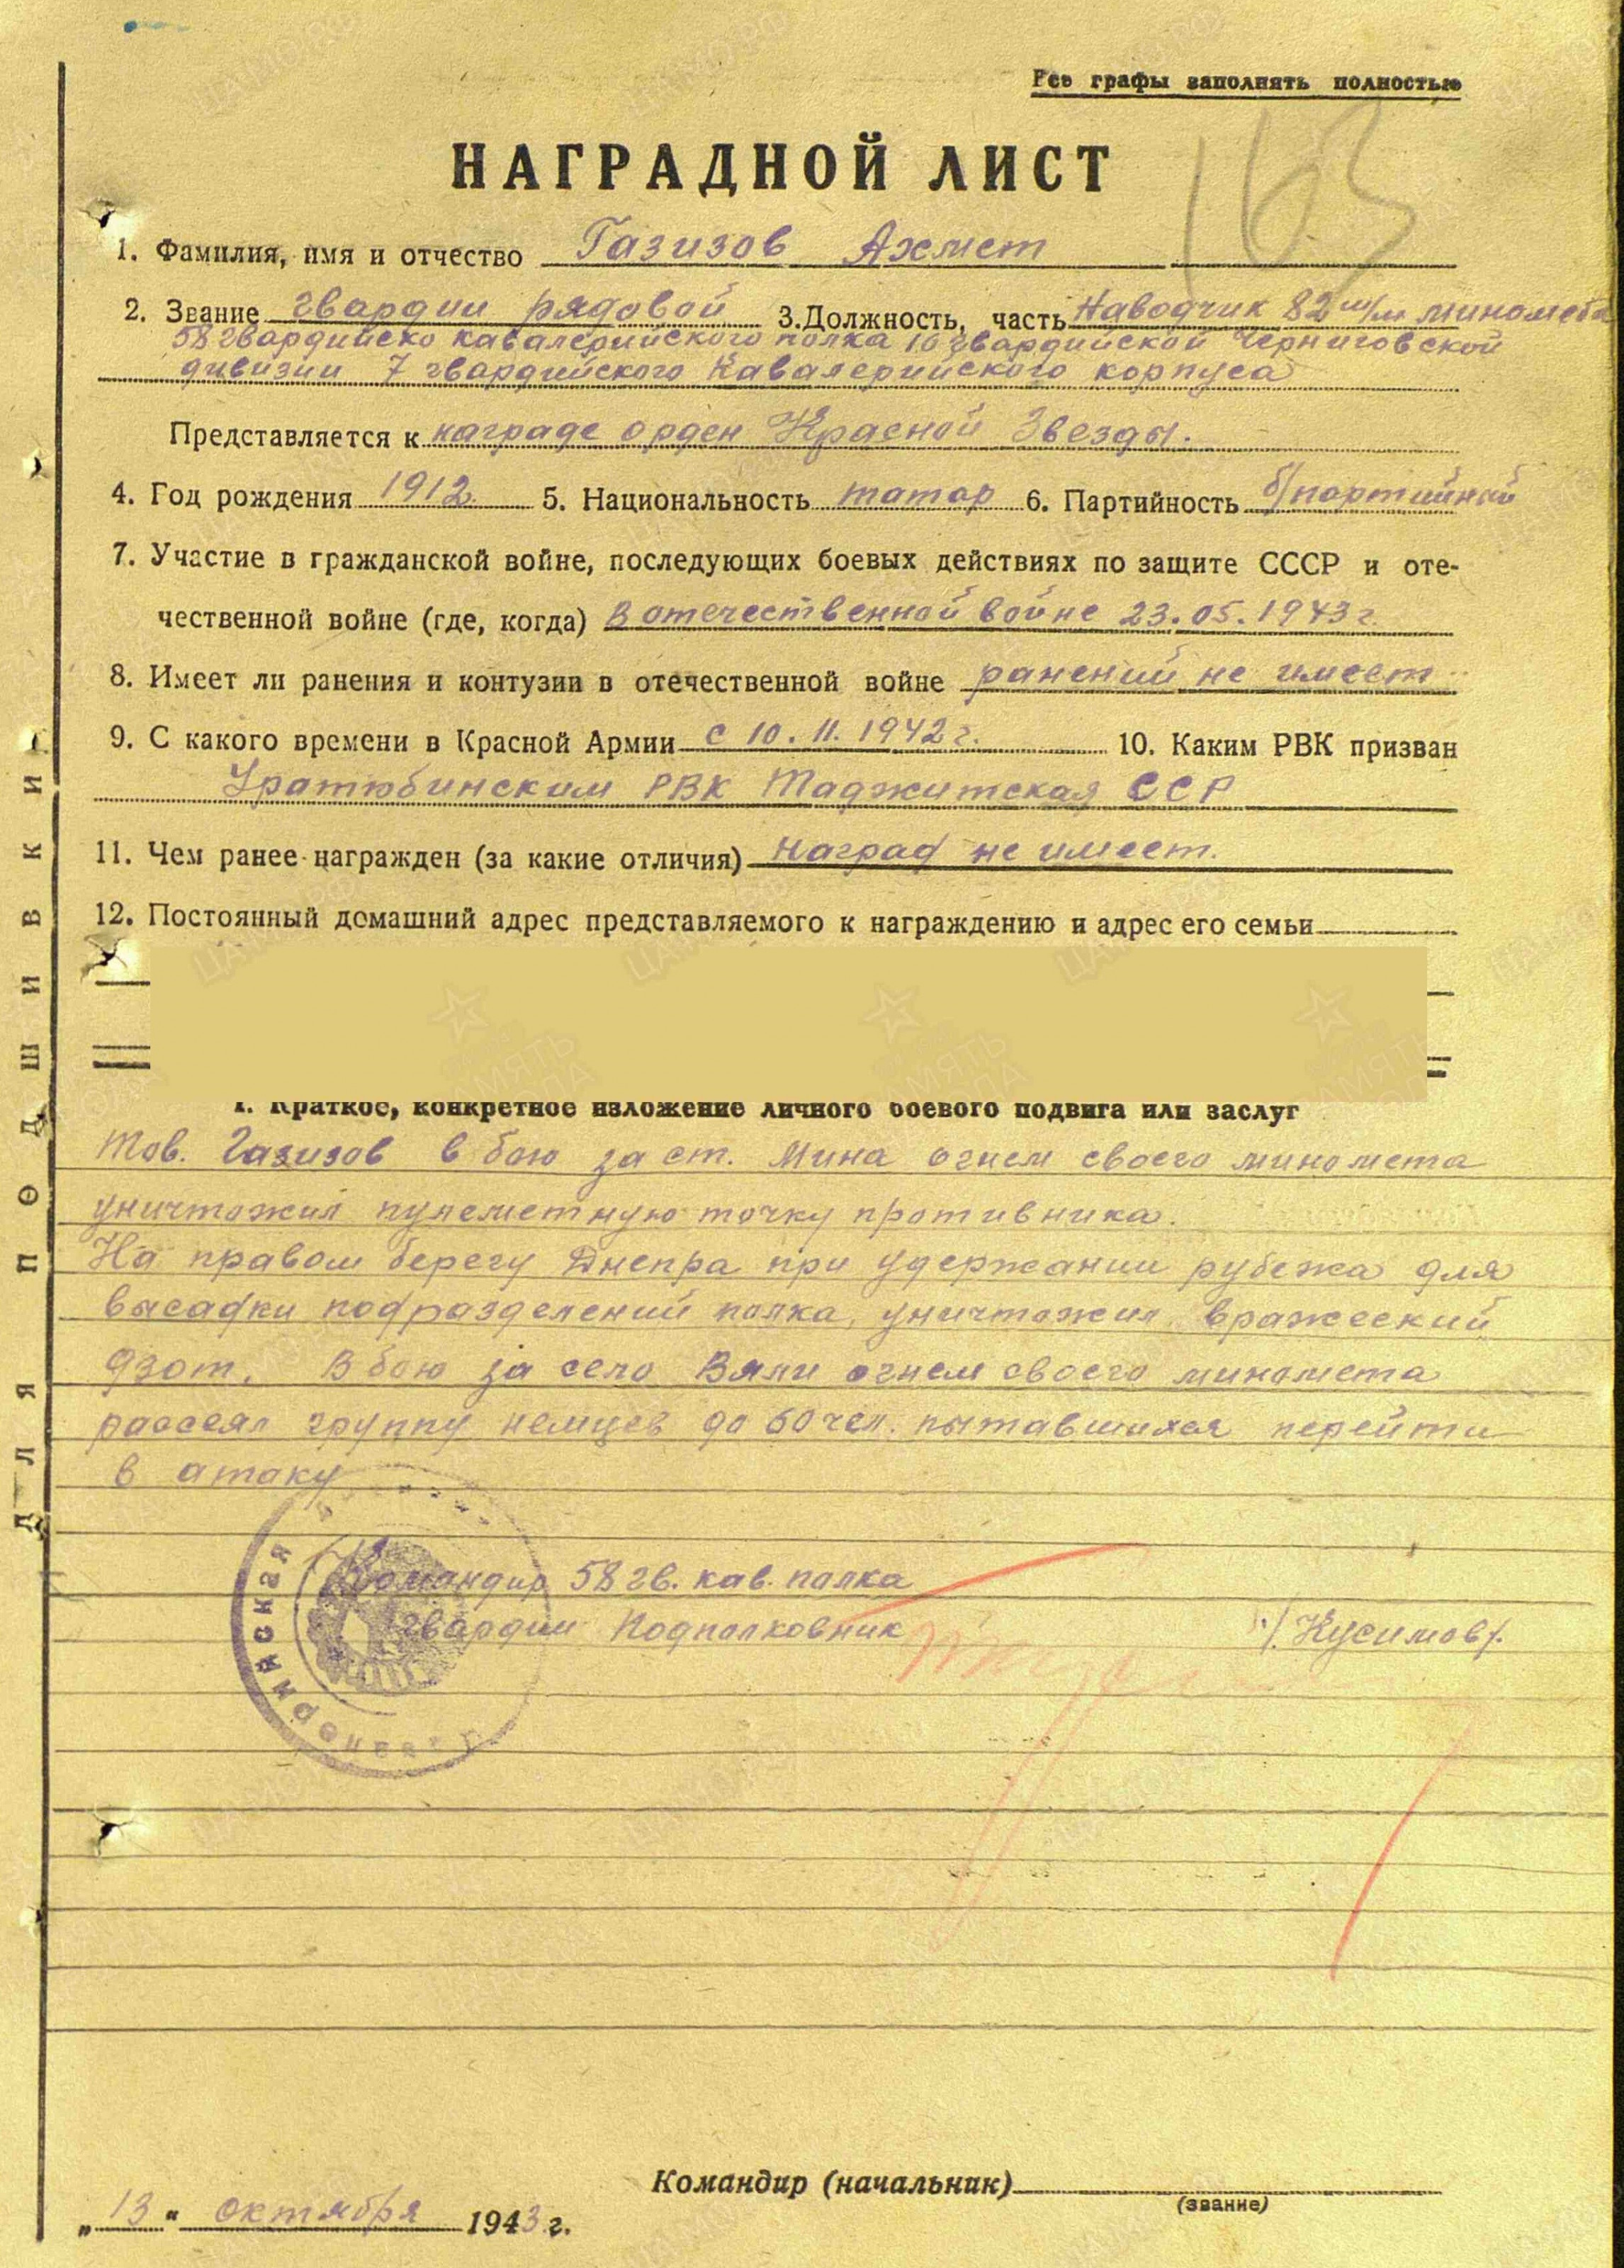 Все графы заполнять полностью
163
НАГРАДНОЙ ЛИСТ
1. Фамилия, имя и отчество Газизов Ахмет
2. Звание гвардии рядовой 3. Должность, часть Наводчик 82 м/м миномета
58 гвардийско кавалерийского полка 16 гвардийской Черниговской
дивизии 7 гвардийского Кавалерийского корпуса
Представляется к награде орден Красной Звезды.
4. Год рождения 1912. 5. Национальность татар 6. Партийность б/партийный
7. Участие в гражданской войне, последующих боевых действиях по защите СССР и оте-
чественной войне (где, когда) В отечественной войне 23.05.1943 г.
8. Имеет ли ранения и контузии в отечественной войне ранений не имеет
9. С какого времени в Красной Армии с 10.11.1942 г. 10. Каким РВК призван
Уратюбинским РВК Таджитская ССР
11. Чем ранее награжден (за какие отличия) Наград не имеет.
12. Постоянный домашний адрес представляемого к награждению и адрес его семьи
I. Краткое, конкретное изложение личного боевого подвига или заслуг
Тов. Газизов в бою за ст. Мина огнем своего миномета
уничтожил пулеметную точку противника.
На правом берегу Днепра при удержании рубежа для
высадки подразделений полка, уничтожил вражеский
дзот. В бою за село Вяли огнем своего миномета
рассеял группу немцев до 60 чел. пытавшихся перейти
в атаку
Командир 58 гв. кав. полка
гвардии Подполковник /Кусимов/.
Командир (начальник)
(звание)
„13“ октября 1943 г.
Для подшивки